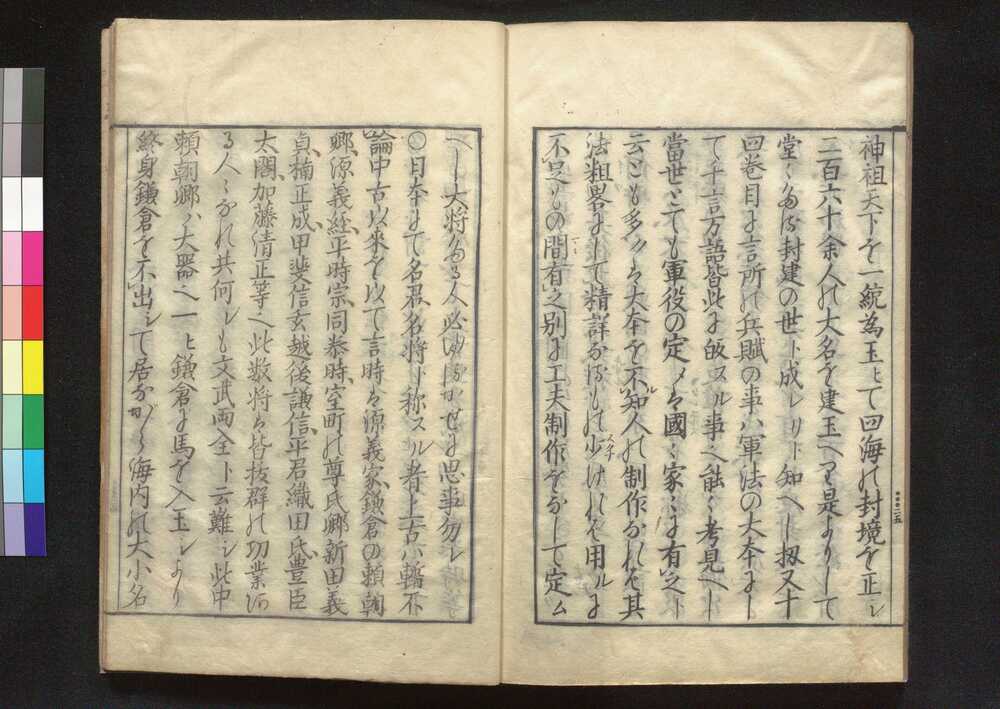 神祖天下を一統為玉ヒて四海の封境を正シ
二百六十余人の大名を建玉へり是よりして
堂々たる封建の世ト成レリト知へし扨又十
四巻目に言所の兵賦の事ハ軍法の大本にし
て千言万語皆此に皈スル事也能ク考見へし
當世とても軍役の定メハ國々家々に有之ト
云とも多クハ大本を不知人の制作なれは其
法粗畧にして精詳なるもの少ければ用ルに
不足もの間有之別に工夫制作をなして定ム
へし大将たる人必ゆるかせに思事勿レ
○日本にて名君名将ト称スル者上古ハ蹔不
論中古以來を以て言時ハ源義家鎌倉の頼朝
卿源義経平時宗同泰時室町の尊氏卿新田義
貞楠正成甲斐信玄越後謙信平君織田氏豊臣
太閤加藤清正等也此数将ハ皆抜群の功業有
る人々なれ共何レも文武両全ト云難シ此中
頼朝卿ハ大器也一ヒ鎌倉に馬を入玉シより
終身鎌倉を不出シて居なから海内の大小名